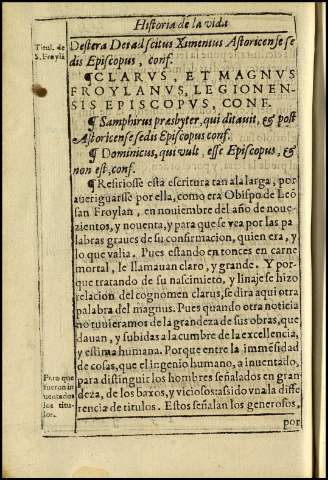 Historia de la vida
Titul. de
S. Froylã
Dextera Dei adscitus Ximenius Astoricense se
dis Episcopus, conf.
¶ CLARVS, ET MAGNVS
FROYLANVS, LEGIONEN-
SIS EPISCOPVS, CONF.
¶ Samphirus præsbyter, qui ditauit, & post
Astoricense sedis Episcopus conf.
¶ Dominicus, qui vult, esse Episcopus, &
non est, conf.
¶ Refiriosse esta escritura tan a la larga, por
aueriguarse por ella, como era Obispo de Leõ
san Froylan, en nouiembre del año de noue-
zientos, y nouenta, y para que se vea por las pa
labras graues de su confirmacion, quien era, y
lo que valia. Pues estando en tonces en carne
mortal, le llamauan claro, y grande. Y por-
que tratando de su nascimiẽto, y linaje se hizo
relacion del cognomen clarus, se dira aqui otra
palabra del magnus. Pues quando otra noticia
no tuuieramos de la grandeza de sus obras, que
dauan, y subidas a la cumbre de la excelencia,
y estima humana. Porque entre la immẽsidad
de cosas, que el ingenio humano, a inuentado,
para distinguir los hombres señalados en gran-
deza, de los baxos, y viciosos: a sido vna la diffe
rencia de titulos. Estos señalan los generosos,
Para que
fueron in
uentados
los titu-
los.
por